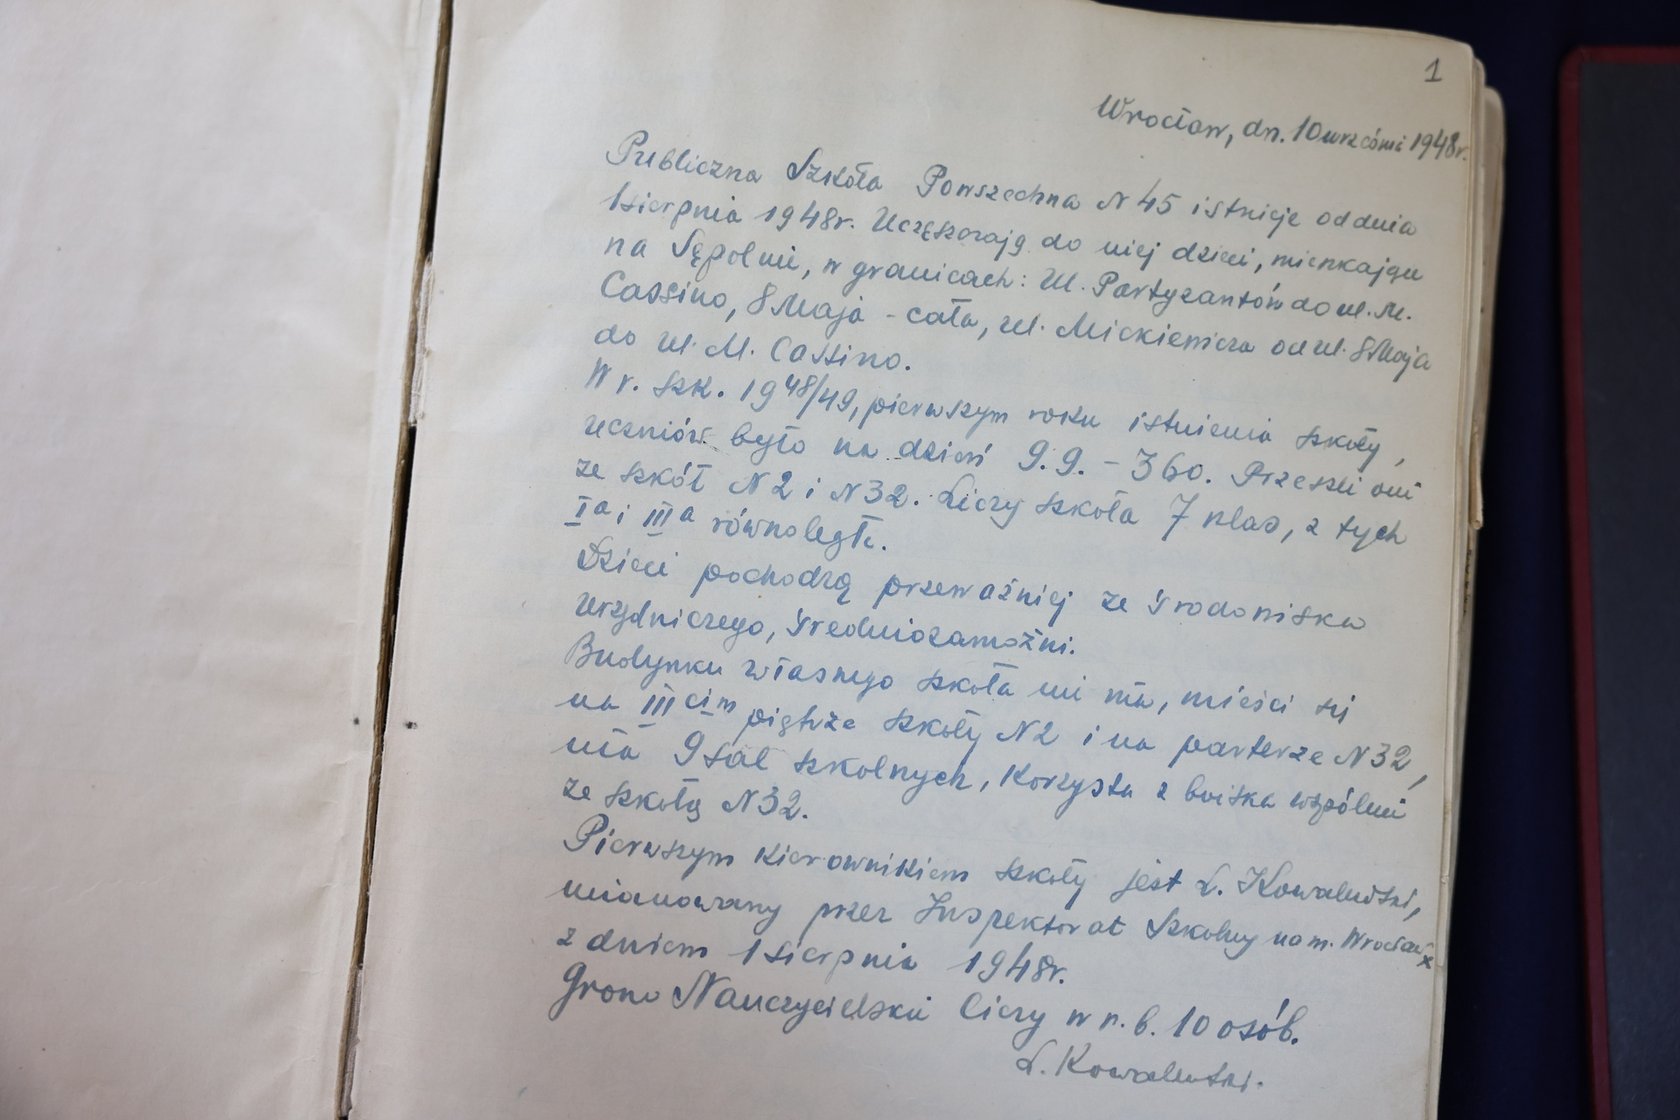 1
Wrocław, dn. 10 września 1948r.
Publiczna Szkoła Powszechna N 45 istnieje od dnia
1 sierpnia 1948r. Uczęszczają do niej dzieci, mieszkające
na Sępolnie, w granicach: ul. Partyzantów do ul. M.
Cassino, 8 Maja - cała, ul. Mickiewicza od ul. 8 Maja
do ul. M. Cassino.
W r. szk. 1948/49, pierwszym roku istnienia szkoły,
uczniów było na dzień 9.9. - 360. Przeszli oni
ze szkół N 2 i N 32. Liczy szkoła 7 klas, z tych
Ia i IIIa równoległe.
Dzieci pochodzą przeważniej ze środowiska
urzędniczego, średniozamożni.
Budynku własnego szkoła nie ma, mieści się
na IIIcim piętrze szkoły N2 i na parterze N 32,
ma 9 sal szkolnych, korzysta z boiska wspólnie
ze szkołą N 32.
Pierwszym kierownikiem szkoły jest L. Kowalewski,
mianowany przez Inspektorat Szkolny na m. Wrocław
z dniem 1 sierpnia 1948r.
Grono Nauczycielskie liczy w r. b. 10 osób.
L. Kowalewski.